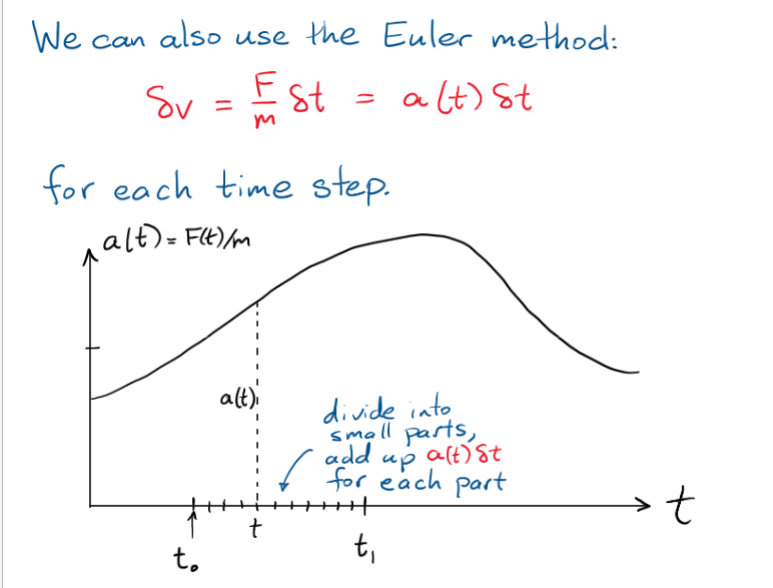 We can also use the Euler method:
δv = F/m δt = a(t) δt
for each time step.
a(t) = F(t)/m
a(t)
divide into
small parts,
add up a(t) δt
for each part
t
t
t₀
t₁